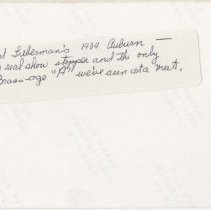 Lieberman's 1924 Auburn —
real show stopper and the only
Brass-age "A" we've seen at a meet.